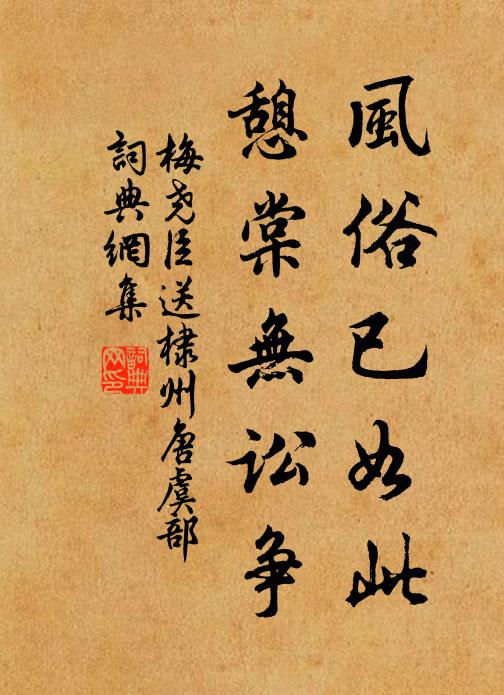 風俗已如此
憩棠無訟争
梅尧臣送棣州唐虞部
詞典網集
詞典网印